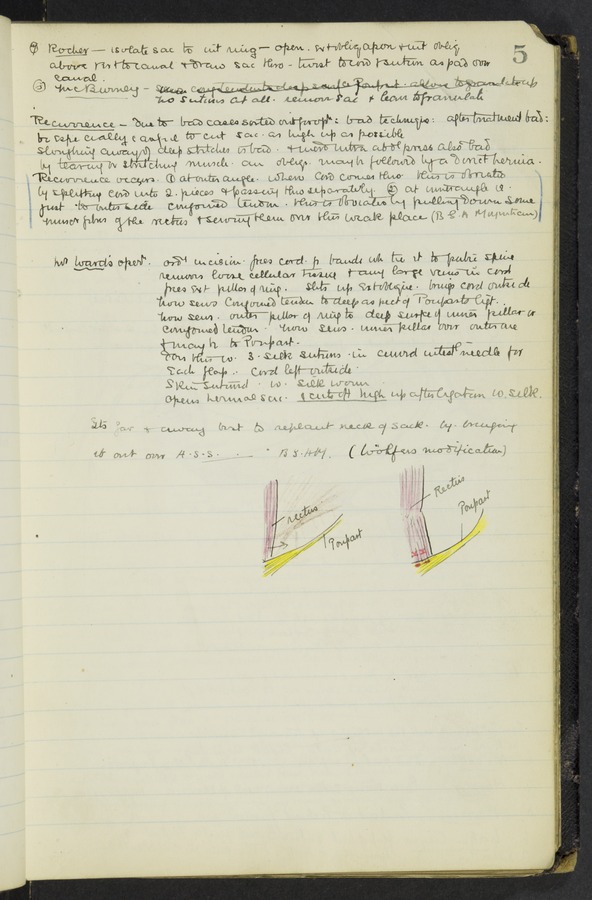 5
Kocher — isolate sac to ext ring — open. ext oblig apon & int oblig
above ext to canal & draw sac thro - twist to cord & suture as pad over
canal.
McBurney —
no sutures at all. remove sac & leave to granulate
Recurrence — Due to bad cases sorted out for op: bad technique: after treatment bad:
be especially careful to cut sac as high up as possible
sloughing away of deep stitches is bad. & undue intra abdl press also bad
by tearing or stretching muscle. an oblig. may be followed by a direct hernia.
Recurrence occurs ① at outer angle where cord comes thro this is obviated
by splitting cord into 2 pieces & passing thro separately ② at inner angle is
just to outer side conjoined tendon. this is obviated by pulling down some
muscr fibres of the rectus & sewing them over this weak place
Mr Ward's opern. ordy incision frees cord fr bands wh tie it to pubic spine
removes loose cellular tissue & any large veins in cord
frees ext pillar of ring. Slits up ext oblique. brings cord outside
now sews conjoined tendon to deep aspect of Poupart's ligt.
now sews. outer pillar of ring to deep surface of inner pillar or
conjoined tendon. now sews. inner pillar over outer one
& may be to Poupart.
For this w. 3 silk sutures in curved needle for
each flap. Cord left outside
Skin sutured w. silk worm
opens hernial sac. & cuts off high up after ligation w. silk.
Its far & away best to replant neck of sack by bringing
it out over A.S.S. (Wölfers modification)
rectus
Poupart
Rectus
Poupart